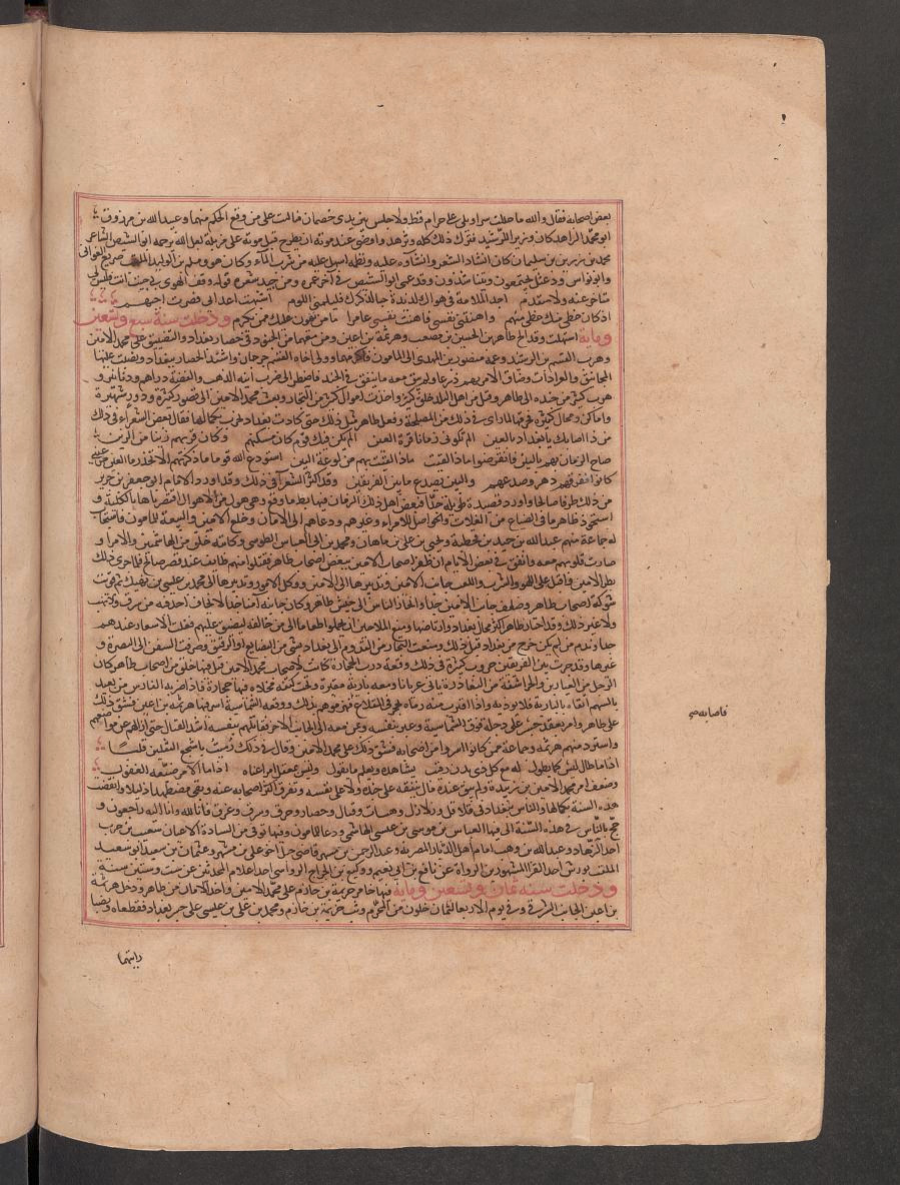 بعض اصحابه فقال والله ما حللت سراويلي على حرام قط ولا جلس بين يدي خصمان فباليت على من وقع الحكم منهما وعبد الله بن مرزوق
ابو محمد الزاهد كان وزير الرشيد فترك ذلك كله وتزهد واوصى عند موته ان يطرح قبل موته على مزبلة لعل الله يرحمه ابو الشيص الشاعر
محمد بن رزين بن سليمان كان انشاد الشعر وانشاؤه عليه ونظمه اسهل عليه من شرب الماء وكان هو ومسلم بن الوليد الملقب صريع الغواني
وابو نواس ودعبل يجتمعون ويتناشدون وقد عمي ابو الشيص في آخر عمره ومن جيد شعره قوله وقف الهوى بي حيث انت فليس لي
متاخر عنه ولا متقدم اجد الملامة في هواك لذيذة حبا لذكرك فليلمني اللوم اشبهت اعدائي فصرت احبهم
اذ كان حظي منك حظي منهم واهنتني فاهنت نفسي عامدا ما من يهون عليك ممن يكرم ودخلت سنة سبع وتسعين
وماية استهلت وقد الح طاهر بن الحسين بن مصعب وهرثمة بن اعين ومن معهما من الجنود في حصار بغداد والتضييق على محمد الامين
وهرب القسم بن الرشيد وعمه منصور بن المهدي الى المامون فاكرمهما وولى اخاه القسم جرجان واشتد الحصار ببغداد ونصب عليها
المجانيق والعرادات وضاق الامين بهم ذرعا ولم يبق معه ما ينفق في الجند فاضطر الى ضرب آنية الذهب والفضة دراهم ودنانير و
هرب كثير من جنده الى طاهر وقتل من اهل البلد خلق كثير واخذت اموال كثيرة من التجار وبعث محمد الامين الى قصور كثيرة ودور شهيرة
واماكن ومحال كثيرة فحرقها لما راى في ذلك من المصلحة وفعل طاهر مثل ذلك حتى كادت بغداد تخرب بكمالها فقال بعض الشعراء في ذلك
من ذا اصابك يا بغداد بالعين الم تكوني زمانا قرة العين الم يكن فيك قوم كان مسكنهم وكان قربهم زينا من الزين
صاح الزمان بهم بالبين فانقرضوا ماذا لقيت ماذا لقيت بهم من لوعة البين استودع الله قوما ما ذكرتهم الا تحدر ماء العين من عيني
كانوا ففرقهم دهر وصدعهم والبين يصدع ما بين الفريقين وقد اكثر الشعراء في ذلك وقد اورد الامام ابو جعفر بن جرير
من ذلك طرفا صالحا واورد قصيدة طويلة جدا لبعض اهل ذلك الزمان فيها بسط ما وقع وهي هول من الاهوال اقتصرناها بالكلية و
استحوذ طاهر على ما في الضياع من الغلات والحواصل للامراء وغيرهم ودعاهم الى الامان وخلع الامين والبيعة للمامون فاستجاب
له جماعة منهم عبد الله بن حميد بن قحطبة ويحيى بن علي بن ماهان ومحمد بن ابي العباس الطوسي وكاتبه خلق من الهاشميين والامراء و
صارت قلوبهم معه واتفق في بعض الايام ان ظفر اصحاب الامين ببعض اصحاب طاهر فقتلوا منهم طائفة عند قصر صالح فلما جرى ذلك
بطر الامين واقبل على اللهو والشرب واللعب ووكل الامور وتدبيرها الى محمد بن عيسى بن نهيك ثم قويت
شوكة اصحاب طاهر وضعف جانب الامين جدا وانحاز الناس الى جيش طاهر وكان جانبه آمنا جدا لا يخاف احد فيه من سرق ولا نهب
ولا غير ذلك وقد اختار طاهر اكثر محال بغداد وارباضها ومنع الملاحين ان يحملوا طعاما الى من خالفه ليضيق عليهم فغلت الاسعار عندهم
جدا وندم من لم يكن خرج من بغداد قبل ذلك ومنعت التجار من القدوم الى بغداد بشي من البضايع او الدقيق وصرفت السفن الى البصرة و
غيرها وقد جرت بين الفريقين حروب كثيرة في ذلك وقعة درب الحجارة كانت لاصحاب محمد الامين قتل فيها خلق من اصحاب طاهر كان
الرجل من العيارين والحرافشة من البغاددة ياتي عريانا ومعه بارية مقيرة وتحت كتفه مخلاة فيها حجارة فاذا ضربه الفارس من بعيد
بالسهم اتقاه بالبارية فلا يوذيه واذا اقترب منه رماه بحجر في المقلاع فهزموهم بذلك ووقعة الشماسية اسر فيها هرثمة بن اعين فشق ذلك
على طاهر وامر بعقد جسر على دجلة فوق الشماسية وعبر بنفسه ومن معه الى الجانب الآخر فقاتلهم بنفسه اشد القتال حتى ازالهم عن مواضعهم
واسترد منهم هرثمة وجماعة ممن كانوا اسروا من اصحابه فشق ذلك على محمد الامين وقال في ذلك
له مع كل ذي بدن رقيب يشاهده ويعلم ما يقول فليس بمغفل امرا عناه اذا ما الامر ضيعه الغفول
وضعف امر محمد الامين بن زبيدة ولم يبق عنده مال ينفقه على جنده ولا على نفسه وتفرق اكثر اصحابه عنه وبقي مضطهدا ذليلا وانقضت
هذه السنة بكمالها والناس ببغداد في قلاقل وزلازل وهيشات وقتال وحصار وحرق وسرق وغرق فانا لله وانا اليه راجعون و
حج بالناس في هذه السنة العباس بن موسى بن عيسى الهاشمي ودعا للمامون وفيها توفي من السادة الاعيان شعيب بن حرب
احد الزهاد وعبد الله بن وهب امام اهل الديار المصرية وعبد الرحمن بن مسهر قاضي جبل اخو علي بن مسهر وعثمان بن سعيد ابو سعيد
الملقب بورش احد القراء المشهورين الرواة عن نافع بن ابي نعيم ووكيع بن الجراح الرواسي احد اعلام المحدثين عن ست وستين سنة
ودخلت سنة ثمان وتسعين وماية فيها خامر خزيمة بن خازم على محمد الامين واخذ الامان من طاهر ودخل هرثمة
بن اعين الجانب الشرقي وفي يوم الاربعا لثمان خلون من المحرم وثب خزيمة بن خازم ومحمد بن علي بن عيسى على جسر بغداد فقطعاه ونصبا
رايتهما
فاصابه صح